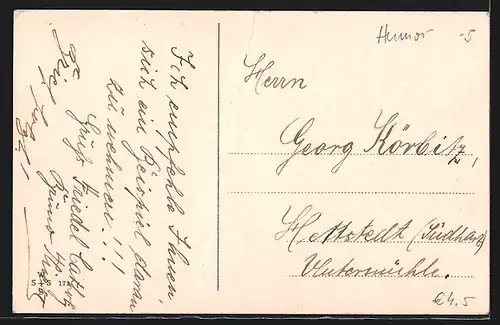 Humor -5
Ich empfehle Ihnen,
sich ein Beispiel daran
zu nehmen!!!
Gruß Friedel
Bruno
Herrn
Georg Körbitz,
Hettstedt (Südharz)
Untermühle.
€4.5
S+S